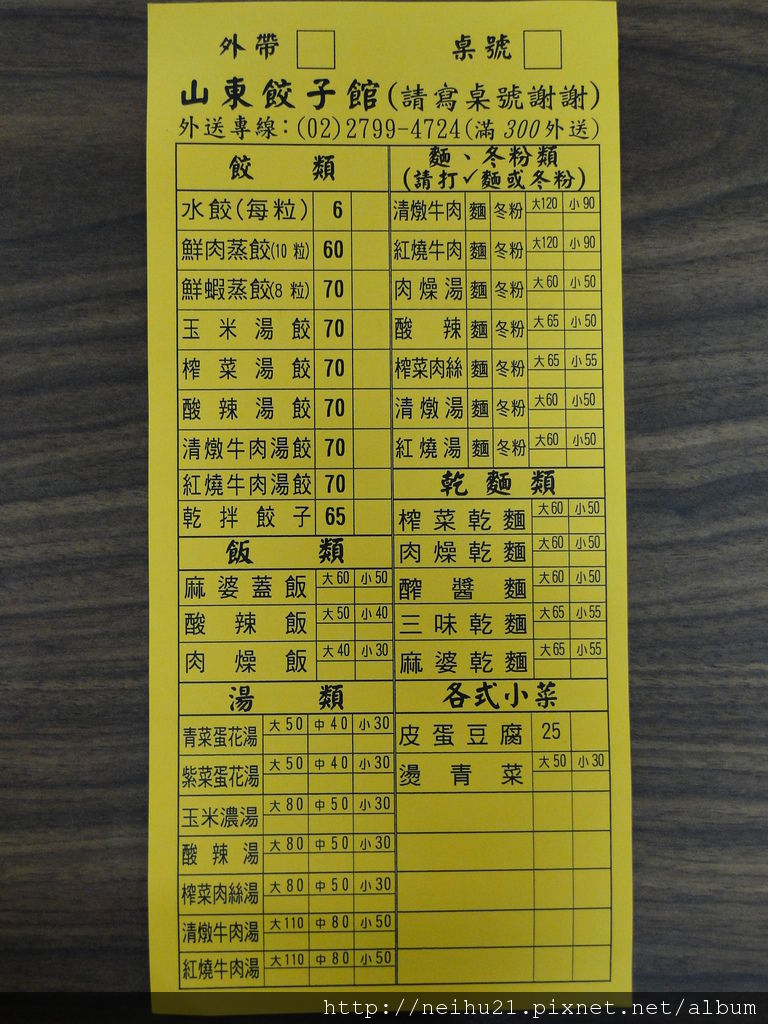 外帶 桌號
山東餃子館(請寫桌號謝謝)
外送專線：(02)2799-4724(滿300外送)
餃類
水餃(每粒) 6
鮮肉蒸餃(10粒) 60
鮮蝦蒸餃(8粒) 70
玉米湯餃 70
榨菜湯餃 70
酸辣湯餃 70
清燉牛肉湯餃 70
紅燒牛肉湯餃 70
乾拌餃子 65
飯類
麻婆蓋飯 大60 小50
酸辣飯 大50 小40
肉燥飯 大40 小30
湯類
青菜蛋花湯 大50 中40 小30
紫菜蛋花湯 大50 中40 小30
玉米濃湯 大80 中50 小30
酸辣湯 大80 中50 小30
榨菜肉絲湯 大80 中50 小30
清燉牛肉湯 大110 中80 小50
紅燒牛肉湯 大110 中80 小50
麵、冬粉類
(請打✓麵或冬粉)
清燉牛肉 麵 冬粉 大120 小90
紅燒牛肉 麵 冬粉 大120 小90
肉燥湯 麵 冬粉 大60 小50
酸辣 麵 冬粉 大65 小50
榨菜肉絲 麵 冬粉 大65 小55
清燉湯 麵 冬粉 大60 小50
紅燒湯 麵 冬粉 大60 小50
乾麵類
榨菜乾麵 大60 小50
肉燥乾麵 大60 小50
醡醬麵 大60 小50
三味乾麵 大65 小55
麻婆乾麵 大65 小55
各式小菜
皮蛋豆腐 25
燙青菜 大50 小30
http://neihu21.pixnet.net/album